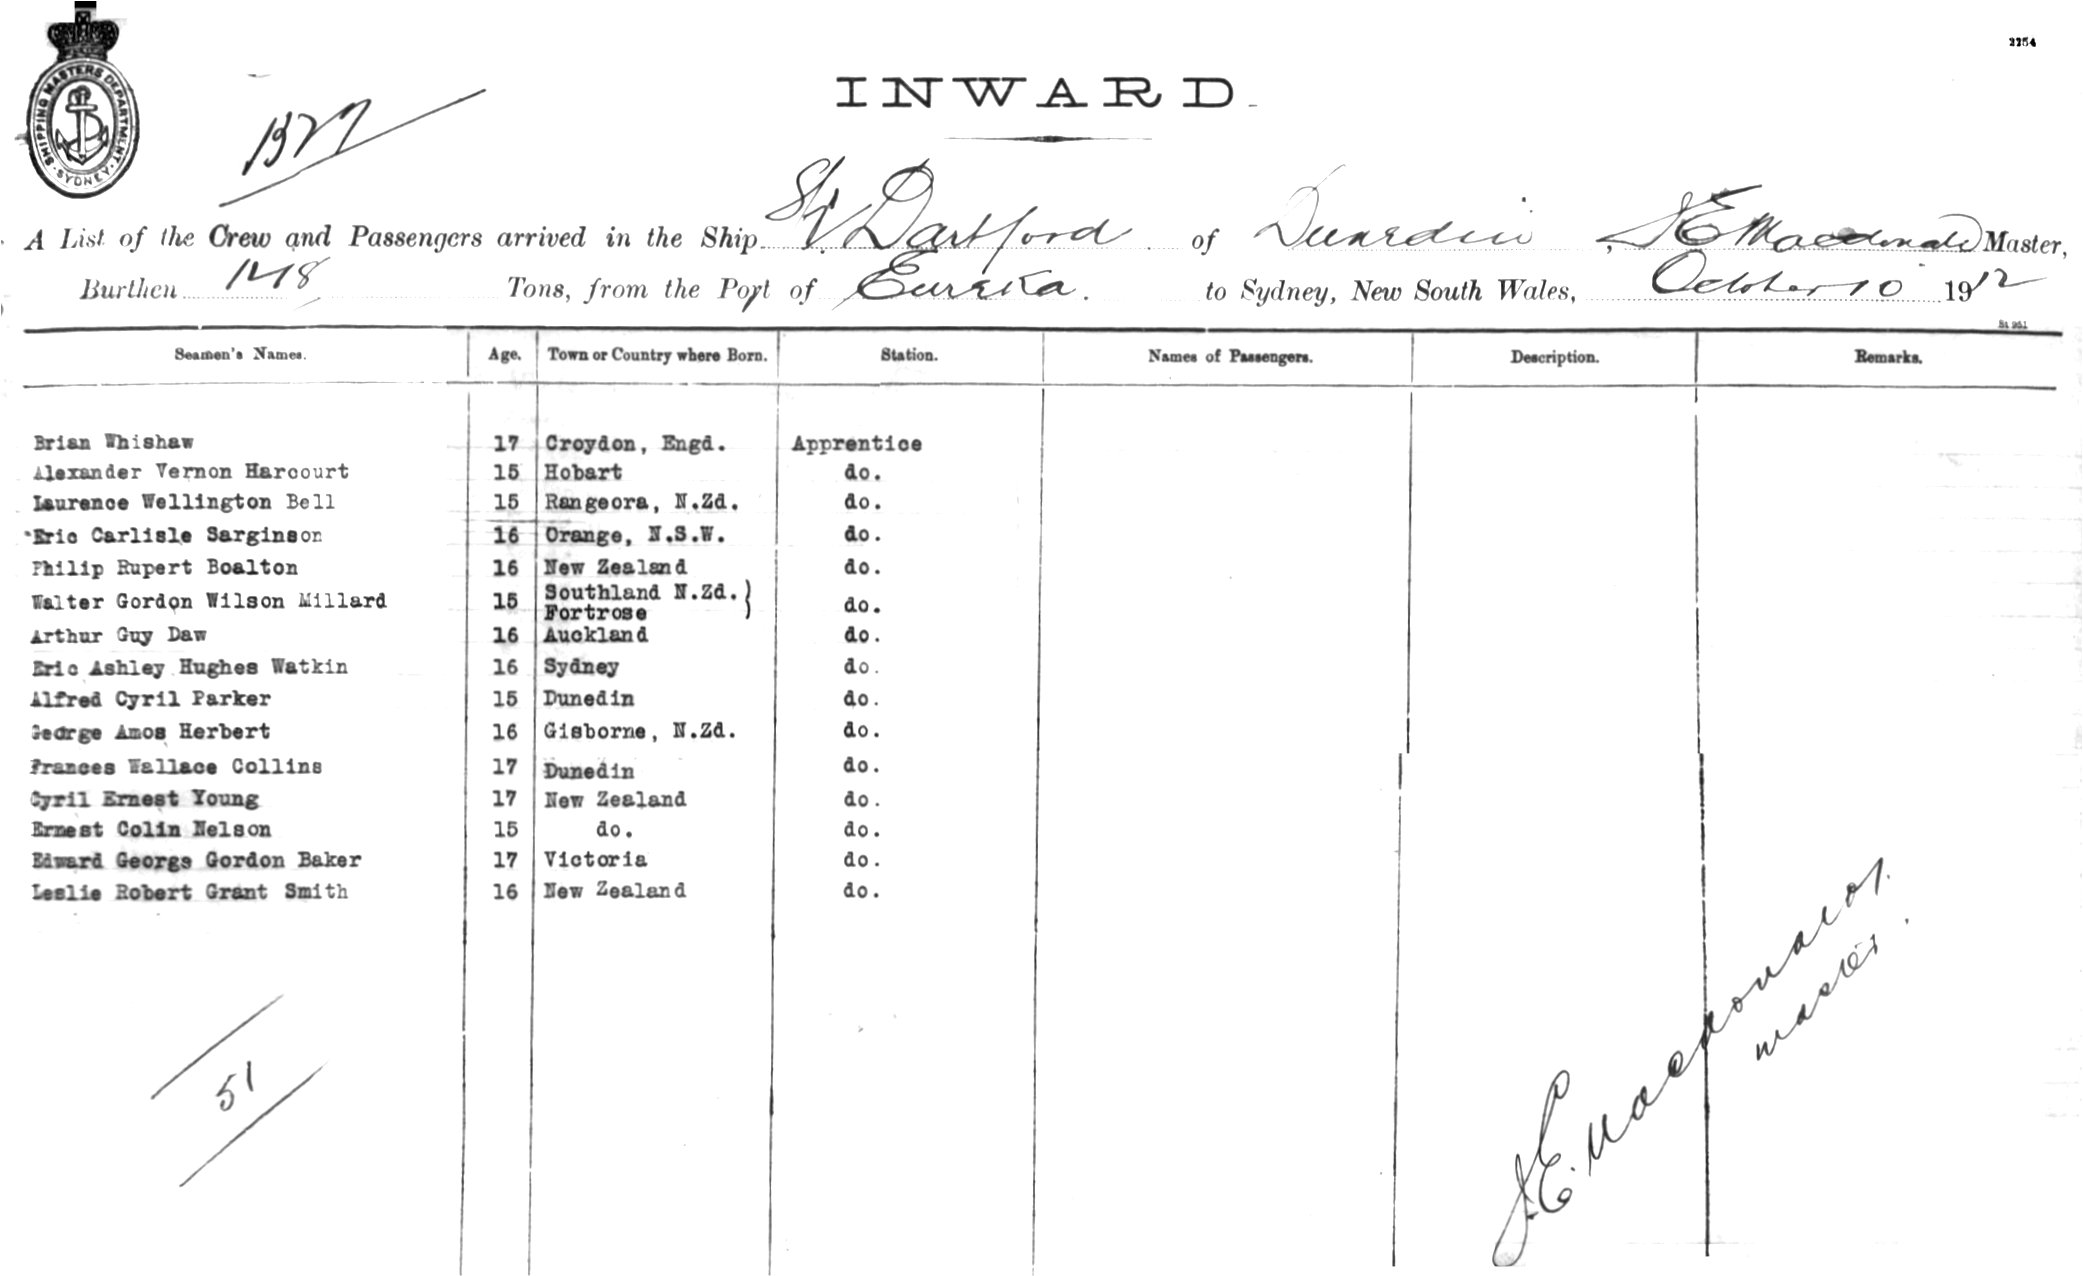 2254
SHIPPING MASTERS DEPARTMENT
SYDNEY
INWARD
A List of the Crew and Passengers arrived in the Ship Dartford of Dunedin, E Macdonald Master,
Burthen Tons, from the Port of Eureka. to Sydney, New South Wales, October 10 1912
St 951
Seamen's Names. Age. Town or Country where Born. Station. Names of Passengers. Description. Remarks.
Brian Whishaw 17 Croydon, Engd. Apprentice
Alexander Vernon Harcourt 15 Hobart do.
Laurence Wellington Bell 15 Rangeora, N.Zd. do.
Eric Carlisle Sarginson 16 Orange, N.S.W. do.
Philip Rupert Boalton 16 New Zealand do.
Walter Gordon Wilson Millard 15 Southland N.Zd.} do.
Fortrose
Arthur Guy Daw 16 Auckland do.
Eric Ashley Hughes Watkin 16 Sydney do.
Alfred Cyril Parker 15 Dunedin do.
George Amos Herbert 16 Gisborne, N.Zd. do.
Frances Wallace Collins 17 Dunedin do.
Cyril Ernest Young 17 New Zealand do.
Ernest Colin Nelson 15 do. do.
Edward George Gordon Baker 17 Victoria do.
Leslie Robert Grant Smith 16 New Zealand do.
51
E. Macdonald
master.